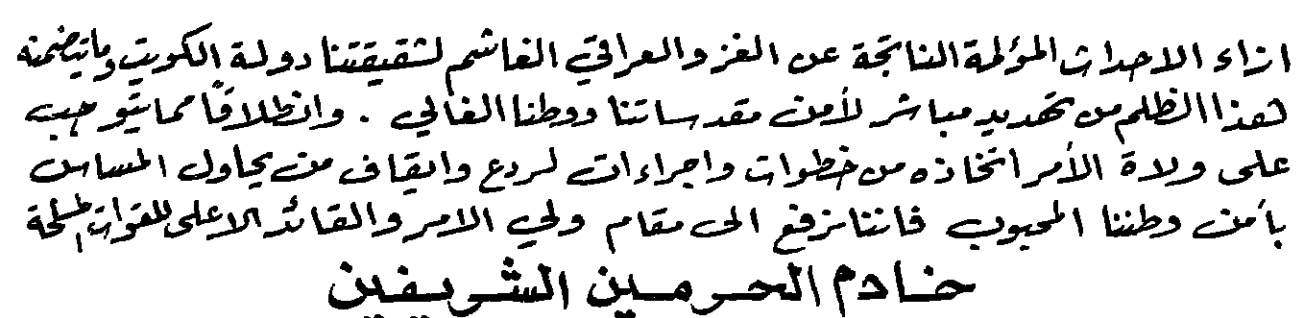 ازاء الاحداث المؤلمة الناتجة عن الغزو العراقي الغاشم لشقيقتنا دولة الكويت وما يتضمنه
هذا الظلم من تهديد مباشر لأمن مقدساتنا ووطننا الغالي . وانطلاقًا مما يتوجب
على ولاة الأمر اتخاذه من خطوات واجراءات لردع وايقاف من يحاول المساس
بأمن وطننا المحبوب فاننا نرفع الى مقام ولي الامر والقائد الاعلى للقوات المسلحة
خادم الحرمين الشريفين